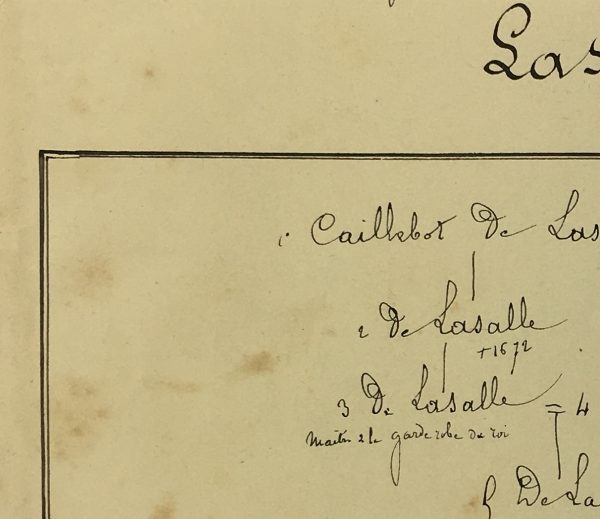 Las
1. Caillebot De Las
2 De Lasalle
+ 1672
3 De Lasalle = 4
Maitre de la garde robe du roi
5 De La